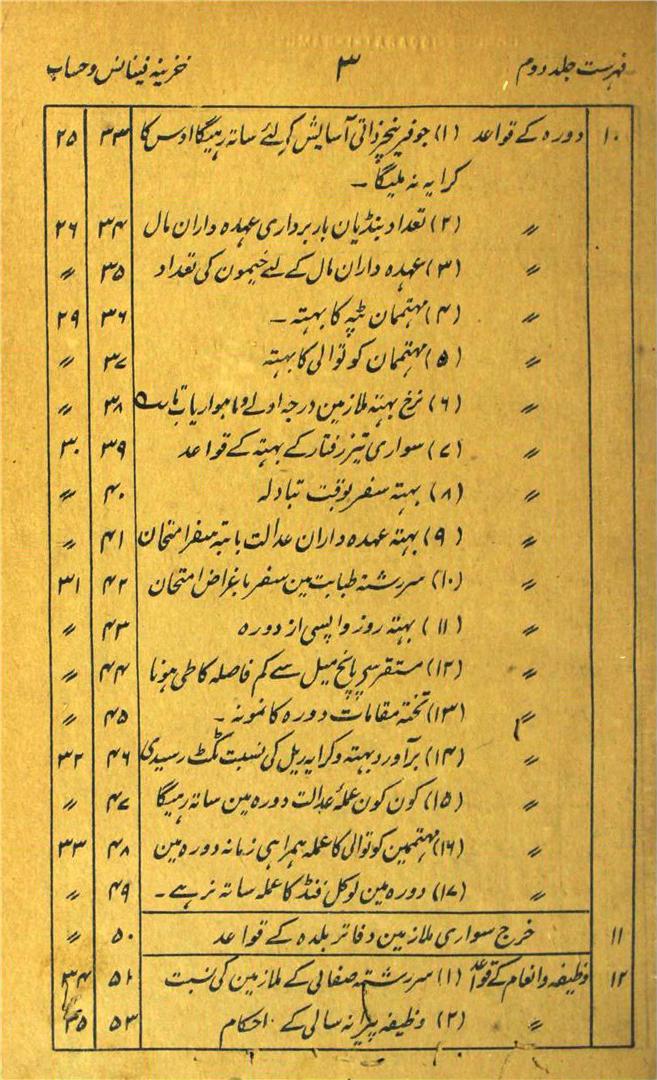 فہرست جلد دوم ۳ خزینہ فینانس وحساب
۱۰ دورہ کے قواعد (۱) جو فرنیچر ذاتی آسایش کیلئے ساتہ رہیگا اوس کا ۳۳ ۲۵
کرایہ نہ ملیگا ۔
〃 (۲) تعداد بنڈیان باربرداری عہدہ داران مال ۳۴ ۲۶
〃 (۳) عہدہ داران مال کے لئے خیمون کی تعداد ۳۵ 〃
〃 (۴) مہتممان ٹپہ کا بہتہ ۔ ۳۶ ۲۹
〃 (۵) مہتممان کوتوالی کا بہتہ ۳۷ 〃
〃 (۶) نرخ بہتہ ملازمین درجہ اولے و ماہوار یاب ۳۸ 〃
〃 (۷) سواری تیز رفتار کے بہتہ کے قواعد ۳۹ ۳۰
〃 (۸) بہتہ سفر بوقت تبادلہ ۴۰ 〃
〃 (۹) بہتہ عہدہ داران عدالت بابتہ سفر امتحان ۴۱ 〃
〃 (۱۰) سررشتہ طبابت مین سفر باغراض امتحان ۴۲ ۳۱
〃 (۱۱) بہتہ روز واپسی از دورہ ۴۳ 〃
〃 (۱۲) مستقر سے پانچ میل سے کم فاصلہ کا طی ہونا ۴۴ 〃
〃 (۱۳) تختہ مقامات دورہ کا نمونہ ۔ ۴۵ 〃
〃 (۱۴) برآورد بہتہ و کرایہ ریل کی نسبت ٹکٹ رسیدی ۴۶ ۳۲
〃 (۱۵) کون کون عملہ عدالت دورہ مین ساتہ رہیگا ۴۷ 〃
〃 (۱۶) مہتممین کوتوالی کا عملہ ہمراہی زمانہ دورہ مین ۴۸ ۳۳
〃 (۱۷) دورہ مین لوکل فنڈ کا عملہ ساتہ نرہے ۔ ۴۹ 〃
۱۱ خرج سواری ملازمین دفاتر بلدہ کے قواعد ۵۰ 〃
۱۲ وظیفہ وانعام کے قواعد (۱) سررشتہ صفائی کے ملازمین کی نسبت ۵۱ ۳۴
〃 (۲) وظیفہ پیرانہ سالی کے احکام ۵۳ ۳۵